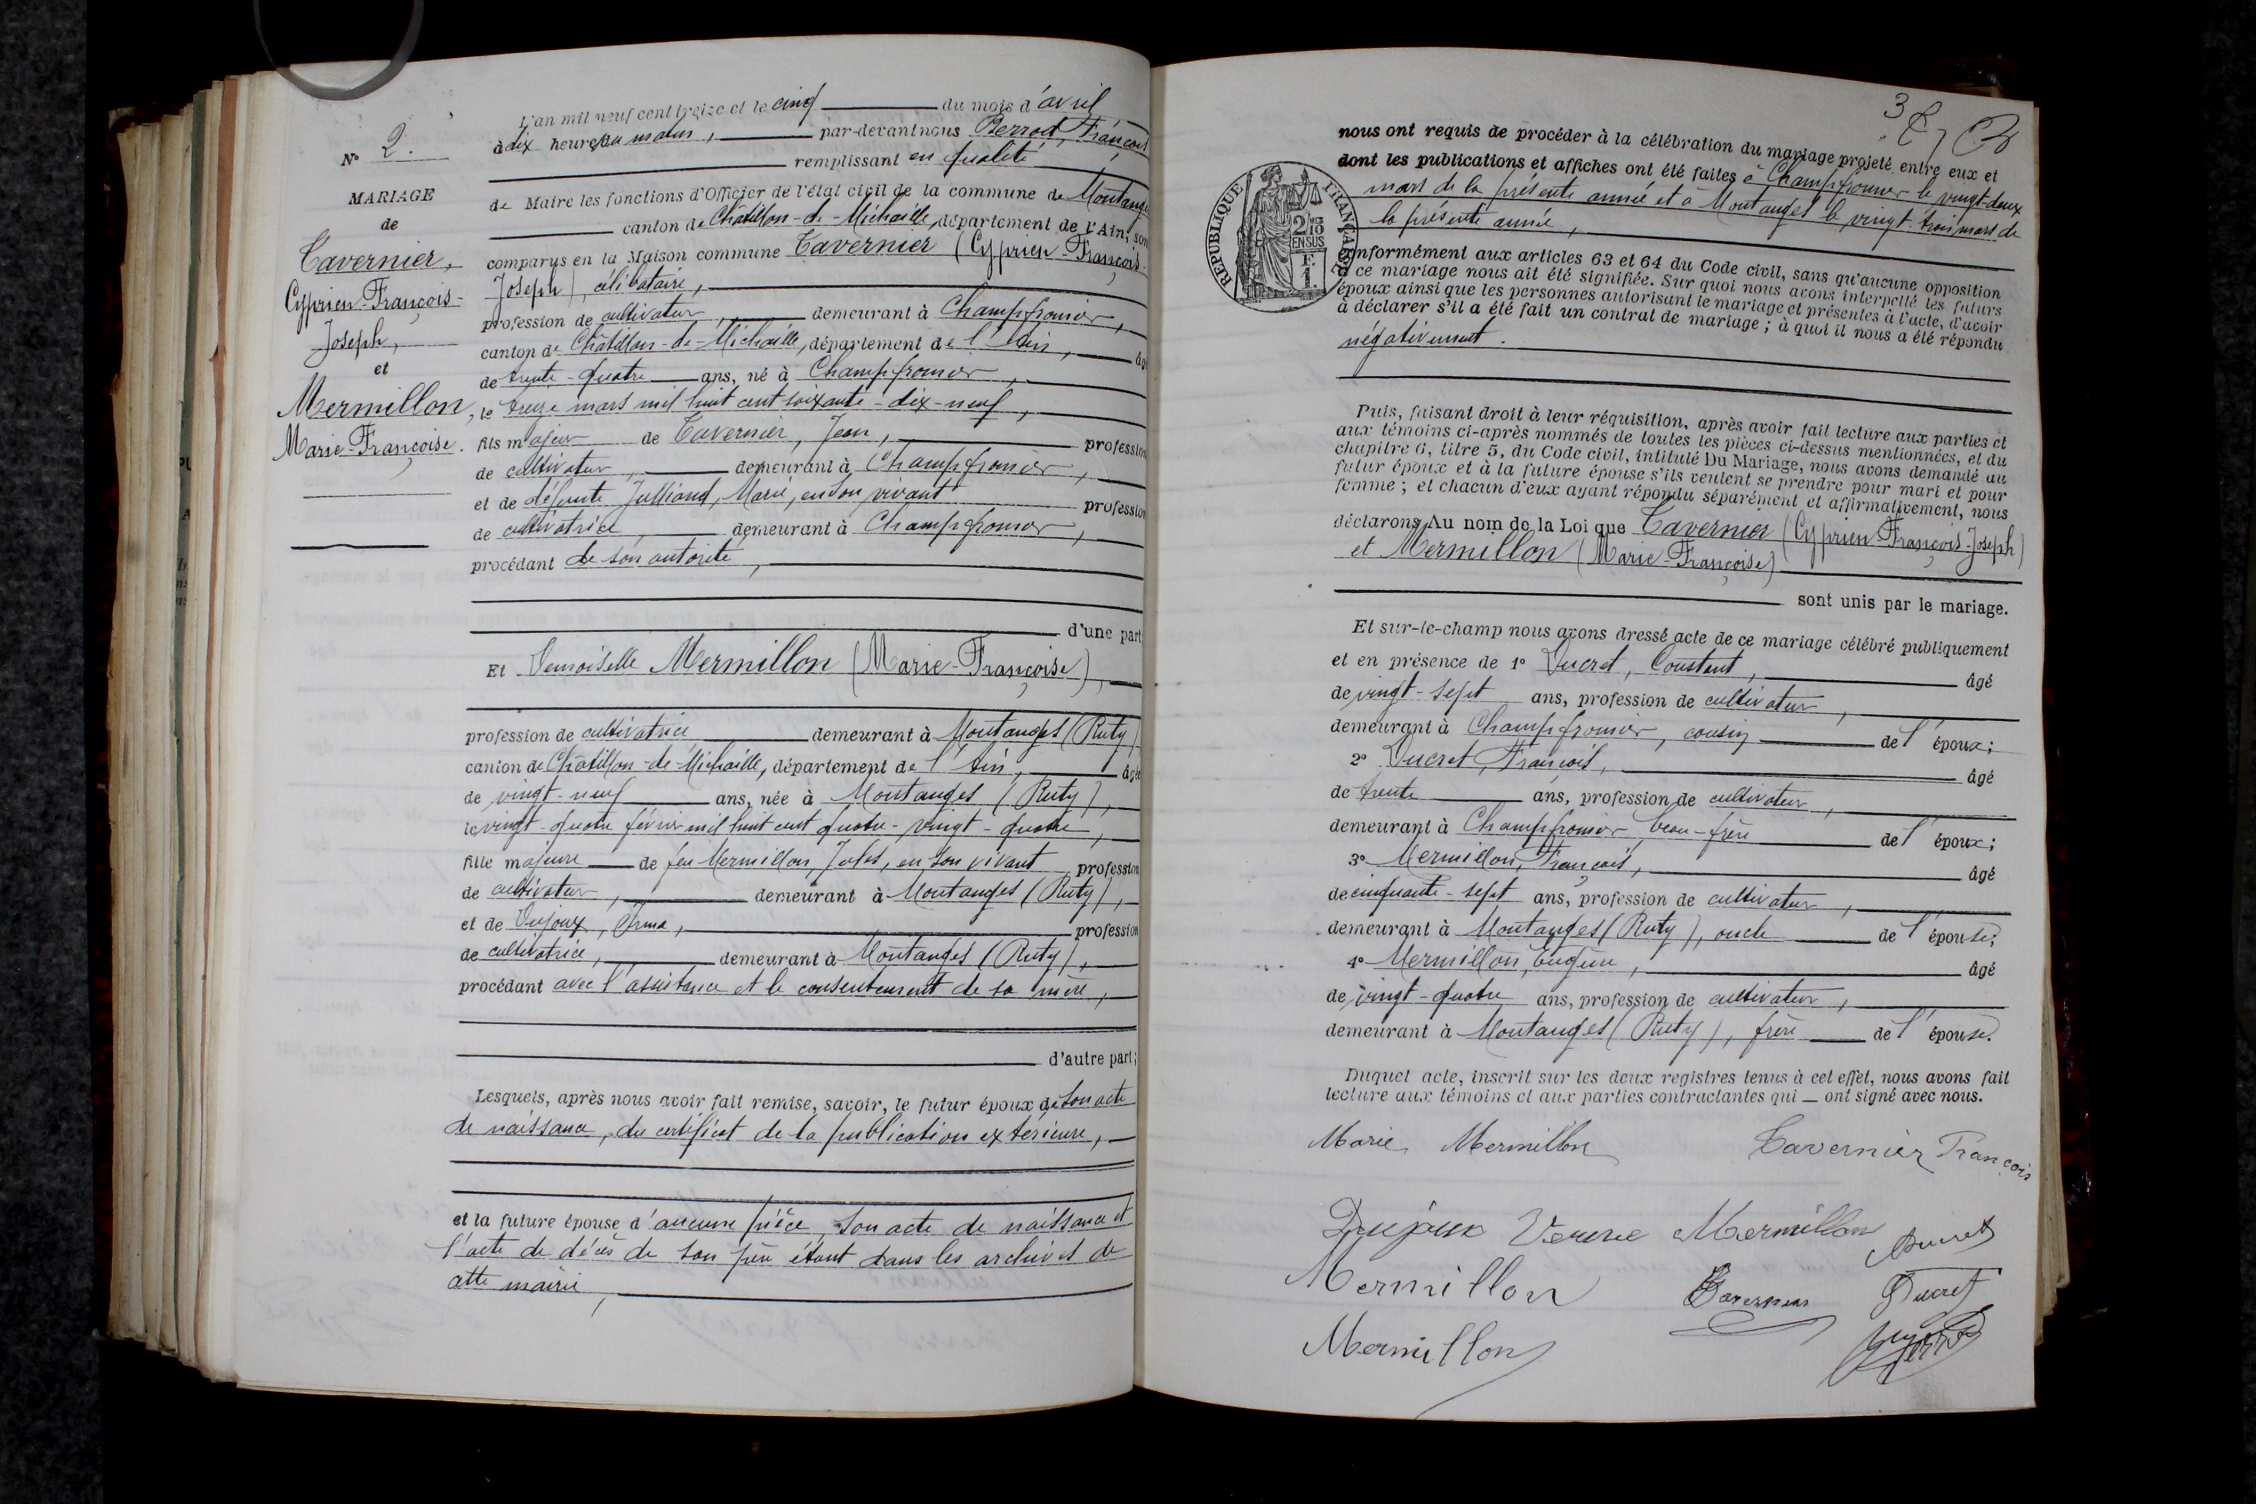 L'an mil neuf cent treize et le cinq du mois d'avril
à dix heures du matin, par-devant nous Berrod, François
remplissant en qualité
de Maire les fonctions d'Officier de l'état civil de la commune de Montanges
canton de Châtillon-de-Michaille, département de l'Ain, sont
comparus en la Maison commune Tavernier (Cyprien-François-
Joseph), célibataire,
profession de cultivateur, demeurant à Champfromier,
canton de Châtillon-de-Michaille, département de l'Ain, âgé
de trente-quatre ans, né à Champfromier,
le treize mars mil huit cent soixante-dix-neuf,
fils majeur de Tavernier, Jean, profession
de cultivateur, demeurant à Champfromier,
et de défunte Julliand, Marie, en son vivant profession
de cultivatrice demeurant à Champfromier,
procédant de son autorité,
d'une part
Et Demoiselle Mermillon (Marie-Françoise),
profession de cultivatrice demeurant à Montanges (Ruty)
canton de Châtillon-de-Michaille, département de l'Ain, âgée
de vingt-neuf ans, née à Montanges (Ruty),
le vingt-quatre février mil huit cent quatre-vingt-quatre,
fille majeure de feu Mermillon, Jules, en son vivant profession
de cultivateur, demeurant à Montanges (Ruty),
et de Dujoux, Irma, profession
de cultivatrice, demeurant à Montanges (Ruty),
procédant avec l'assistance et le consentement de sa mère,
d'autre part;
Lesquels, après nous avoir fait remise, savoir, le futur époux de son acte
de naissance, du certificat de la publication extérieure,
et la future épouse d'aucune pièce, son acte de naissance et
l'acte de décès de son père étant dans les archives de
cette mairie,
N° 2.
MARIAGE
de
Tavernier,
Cyprien-François-
Joseph,
et
Mermillon,
Marie-Françoise.
3
nous ont requis de procéder à la célébration du mariage projeté entre eux et
dont les publications et affiches ont été faites à Champfromier le vingt-deux
mars de la présente année et à Montanges le vingt-trois mars de
la présente année,
conformément aux articles 63 et 64 du Code civil, sans qu'aucune opposition
à ce mariage nous ait été signifiée. Sur quoi nous avons interpellé les futurs
époux ainsi que les personnes autorisant le mariage et présentes à l'acte, d'avoir
à déclarer s'il a été fait un contrat de mariage; à quoi il nous a été répondu
négativement.
RÉPUBLIQUE FRANÇAISE
2/10
EN SUS
F.
1.
Puis, faisant droit à leur réquisition, après avoir fait lecture aux parties et
aux témoins ci-après nommés de toutes les pièces ci-dessus mentionnées, et du
chapitre 6, titre 5, du Code civil, intitulé Du Mariage, nous avons demandé au
futur époux et à la future épouse s'ils veulent se prendre pour mari et pour
femme; et chacun d'eux ayant répondu séparément et affirmativement, nous
déclarons Au nom de la Loi que Tavernier (Cyprien-François-Joseph)
et Mermillon (Marie-Françoise)
sont unis par le mariage.
Et sur-le-champ nous avons dressé acte de ce mariage célébré publiquement
et en présence de 1° Ducret, Constant, âgé
de vingt-sept ans, profession de cultivateur,
demeurant à Champfromier, cousin de l'époux;
2° Ducret, François, âgé
de trente ans, profession de cultivateur,
demeurant à Champfromier beau-frère de l'époux;
3° Mermillon, François, âgé
de cinquante-sept ans, profession de cultivateur,
demeurant à Montanges (Ruty), oncle de l'épouse;
4° Mermillon, Eugène, âgé
de vingt-quatre ans, profession de cultivateur,
demeurant à Montanges (Ruty), frère de l'épouse.
Duquel acte, inscrit sur les deux registres tenus à cet effet, nous avons fait
lecture aux témoins et aux parties contractantes qui ont signé avec nous.
Marie Mermillon Tavernier François
Dujoux Mermillon Ducret
Mermillon Tavernier Ducret
Mermillon